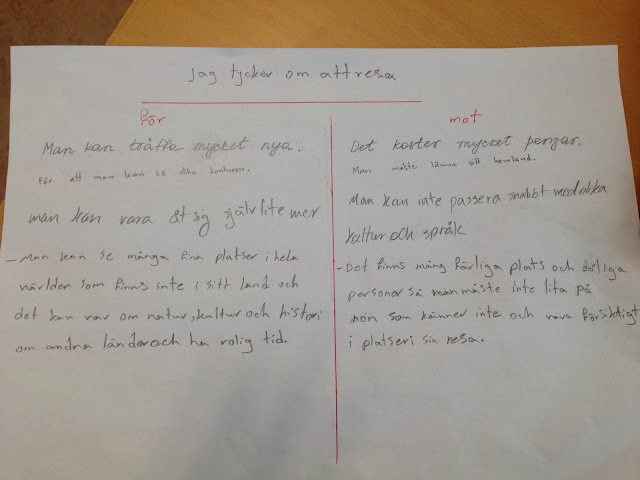 Jag tycker om att resa
för
Man kan träffa mycket nya.
För att man kan se olika konturen.
man kan vara åt sig själv lite mer
- Man kan se många fina platser i hela
världen som finns inte i sitt land och
det kan var om natur, kultur och histori
om andra länder och ha rolig tid.
mot
Det koster mycket pengar.
Man måste lämna sitt hemland.
Man kan inte passera snabbt med olika
kultur och språk
- Det finns mång färliga plats och dåliga
personer så man måste inte lita på
non som känner inte och vara försiktigt
i platser i sin resa.